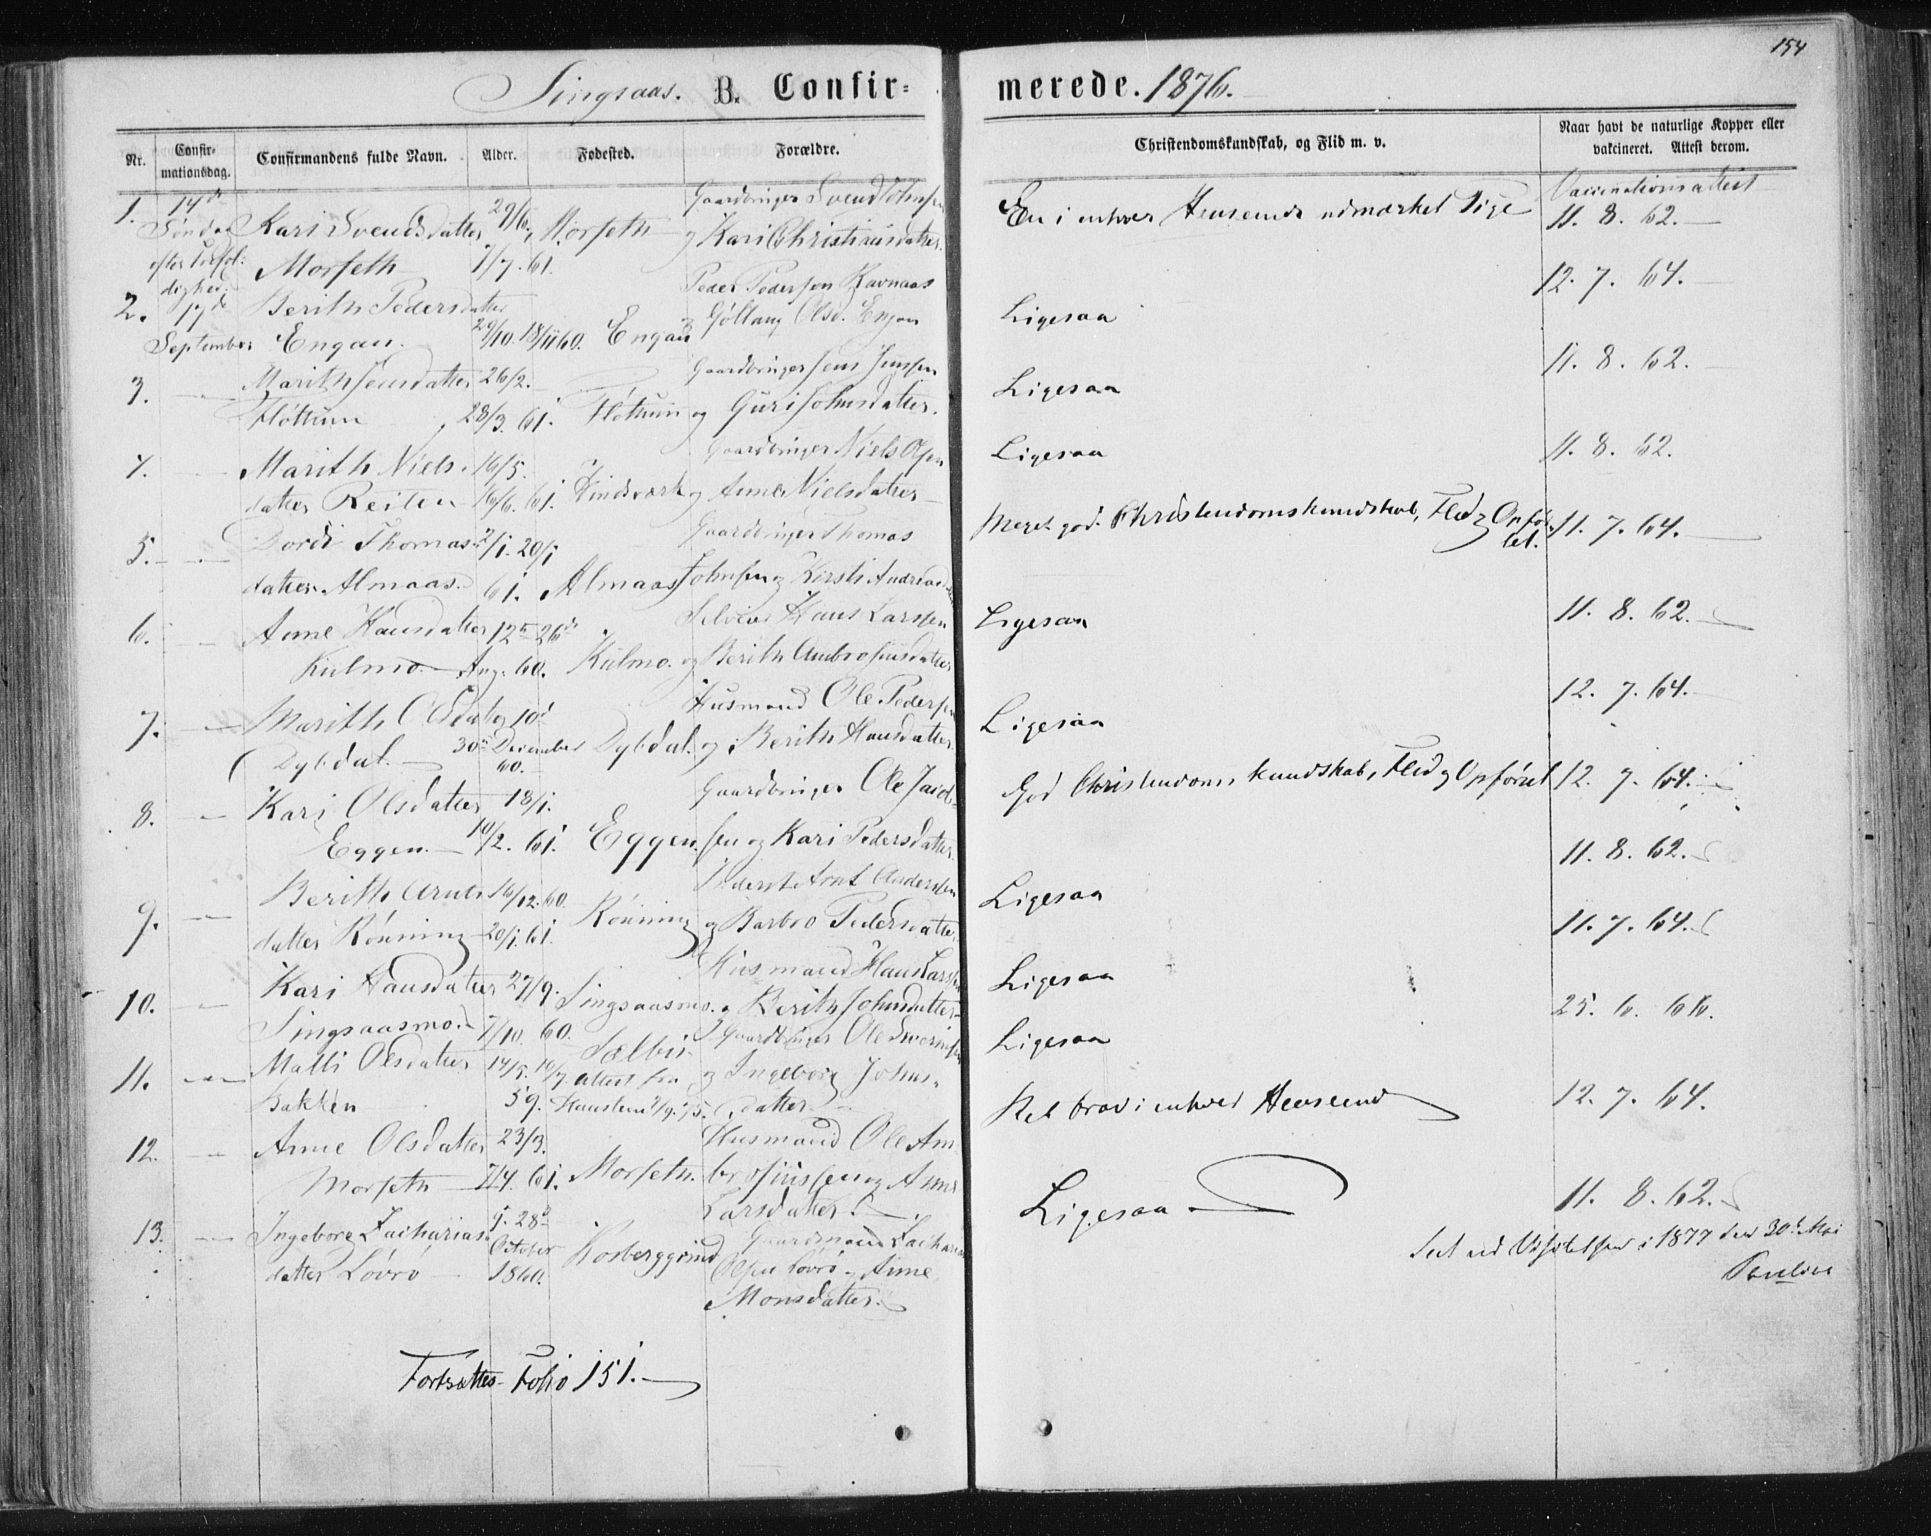 154
Singsaas. B. Confir=
merede. 1876.
Nr.
Confir-
mationsdag.
Confirmandens fulde Navn.
Alder.
Fødested.
Forældre.
Christendomskundskab, og Flid m. v.
Naar havt de naturlige Kopper eller
vakcineret. Attest derom.
1. 14de Gaardbruger Svend Johnsen
Søndag Kari Svendsdatter 29/6. Morseth og Kari Christiansdatter.
efter Trefol- Morseth 7/7. 61.
dighed. Peder Pedersen Ravnaas
2. 17de Berith Pedersdatter og Gøllaug Olsd. Engan
September Engan. 29/10. 18/11 60. Engan
3. Marith Jensdatter 26/2. Gaardbruger Jens Jensen
Fløttum 28/3. 61. Fløttum og Guri Johnsdatter.
4. Marith Niels- 16/5. Gaardbruger Niels Olsen
datter Reiten 16/6. 61. Kindsværk og Anne Nielsdatter
5. Dordi Thomas- 2/1. 20/1 Gaardbruger Thomas
datter Almaas. 61. Almaas Johnsen og Kirsti Andreasd.
6. Anne Hansdatter 12te 26de Selveier Hans Larssen
Kulmo. Aug. 60. Kulmo. og Berith Ambrosiusdatter
7. Marith Olsdatter 10de Husmand Ole Pedersen
Dybdal. 30te December 60. Dybdal. og Berith Hansdatter
8. Kari Olsdatter 18/1. Gaardbruger Ole
Eggen. 10/2. 61. Eggen. sen og Kari Pedersdatter.
9. Berith Arnts- 16/12. 60. Inderst Arnt Andersen
datter Rønning 20/1. 61. Rønning og Barbro Pedersdatter
10. Kari Hansdatter 27/9. Husmand Hans Larssen
Singsaasmo. 7/10. 60. Singsaasmo. og Berith Johnsdatter
11. Malli Olsdatter 14/5. 10/7 Sælbu Gaardbruger Ole
Bakken 59. Attest fra og Ingeborg Johns-
datter
12. Anne Olsdatter 23/3. Husmand Ole Am-
Morseth 7/4. 61. Morseth. brosiussen og Anne
Larsdatter.
13. Ingeborg Zacharias- 9. 28de Gaardmand Zacharias
datter Løvrø October 1860. Olsen Løvrø og Anne
Monsdatter.
Fortsættes Folio 151.
Vaccinationsattest
En i enhver Henseende udmærket Pige 11. 8. 62.
Ligesaa 12. 7. 64.
Ligesaa 11. 8. 62.
Ligesaa 11. 8. 62.
Meget god Christendomskundskab, Flid og Opførsel. 11. 7. 64.
Ligesaa 11. 8. 62.
Ligesaa 12. 7. 64.
God Christendomskundskab, Flid og Opførsel 12. 7. 64.
11. 8. 62.
Ligesaa
11. 7. 64.
Ligesaa
25. 6. 66.
Ligesaa
Ret brav i enhver Henseende 12. 7. 64.
Ligesaa 11. 8. 62.
Seet ved Visitatsen i 1877 den 30te Mai